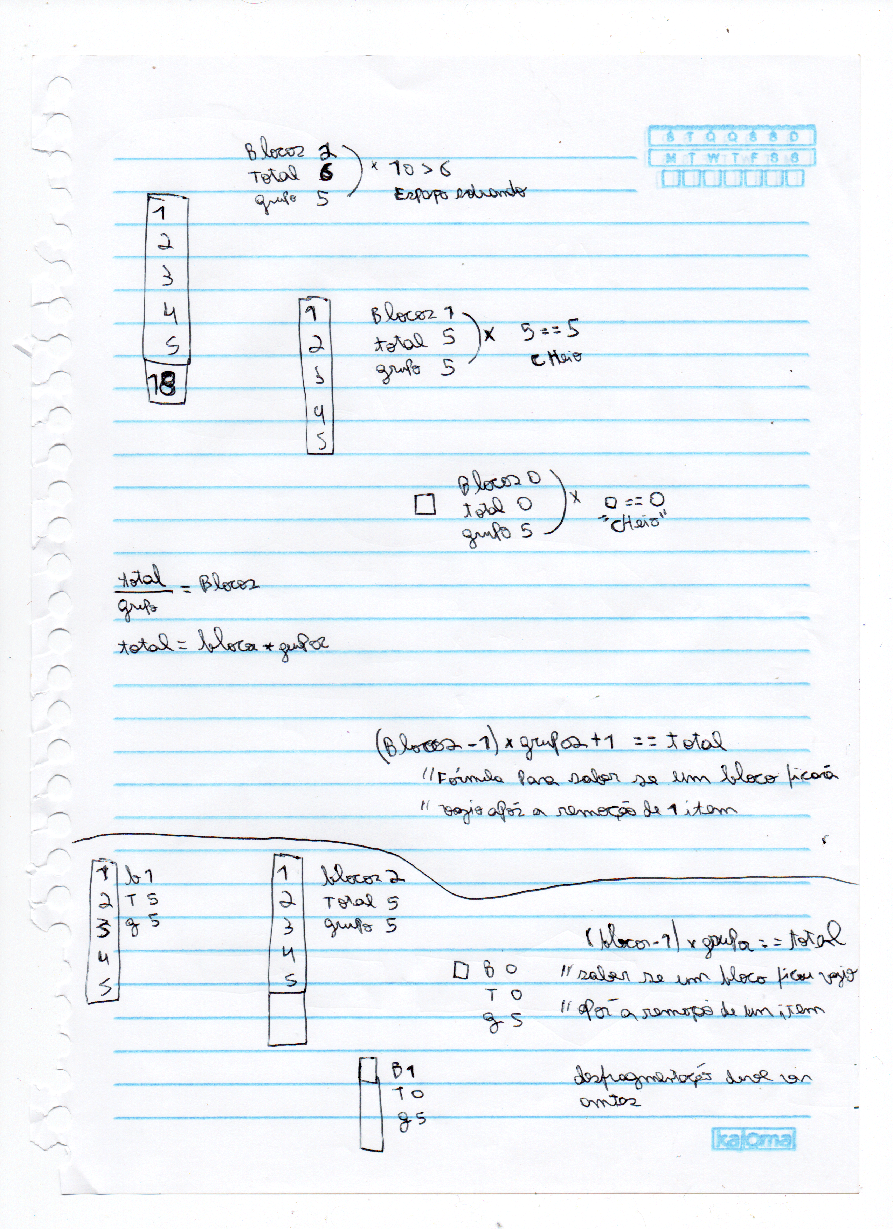 S T Q Q S S D
M T W T F S S
Blocos 2
Total 6
grupo 5
* 10 > 6
Espaço sobrando
1
2
3
4
5
18
1
2
3
4
5
Blocos 1
total 5
grupo 5
x 5 == 5
cHeio
Blocos 0
total 0
grupo 5
x 0 == 0
"cHeio"
total
grupo
= Blocos
total = blocos * grupos
(Blocos - 1) x grupos + 1 == total
// Fórmula para saber se um bloco ficará
// vazio após a remoção de 1 item
1
2
3
4
5
b 1
T 5
g 5
1
2
3
4
5
blocos 2
Total 5
grupo 5
(blocos - 1) x grupos == total
// saber se um bloco ficou vazio
// após a remoção de um item
B 0
T 0
g 5
B 1
T 0
g 5
desfragmentação deve vir
antes
kajoma